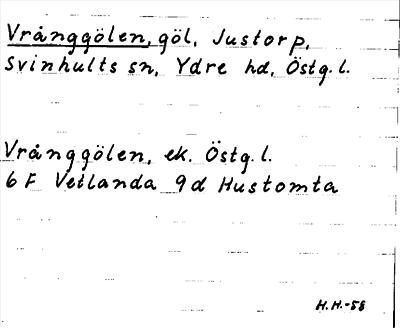 Vrånggölen, göl, Justorp,
Svinhults sn, Ydre hd, Östg. l.
Vrånggölen, ek. Östg. l.
6 F Vetlanda 9d Hustomta
H.H.-58